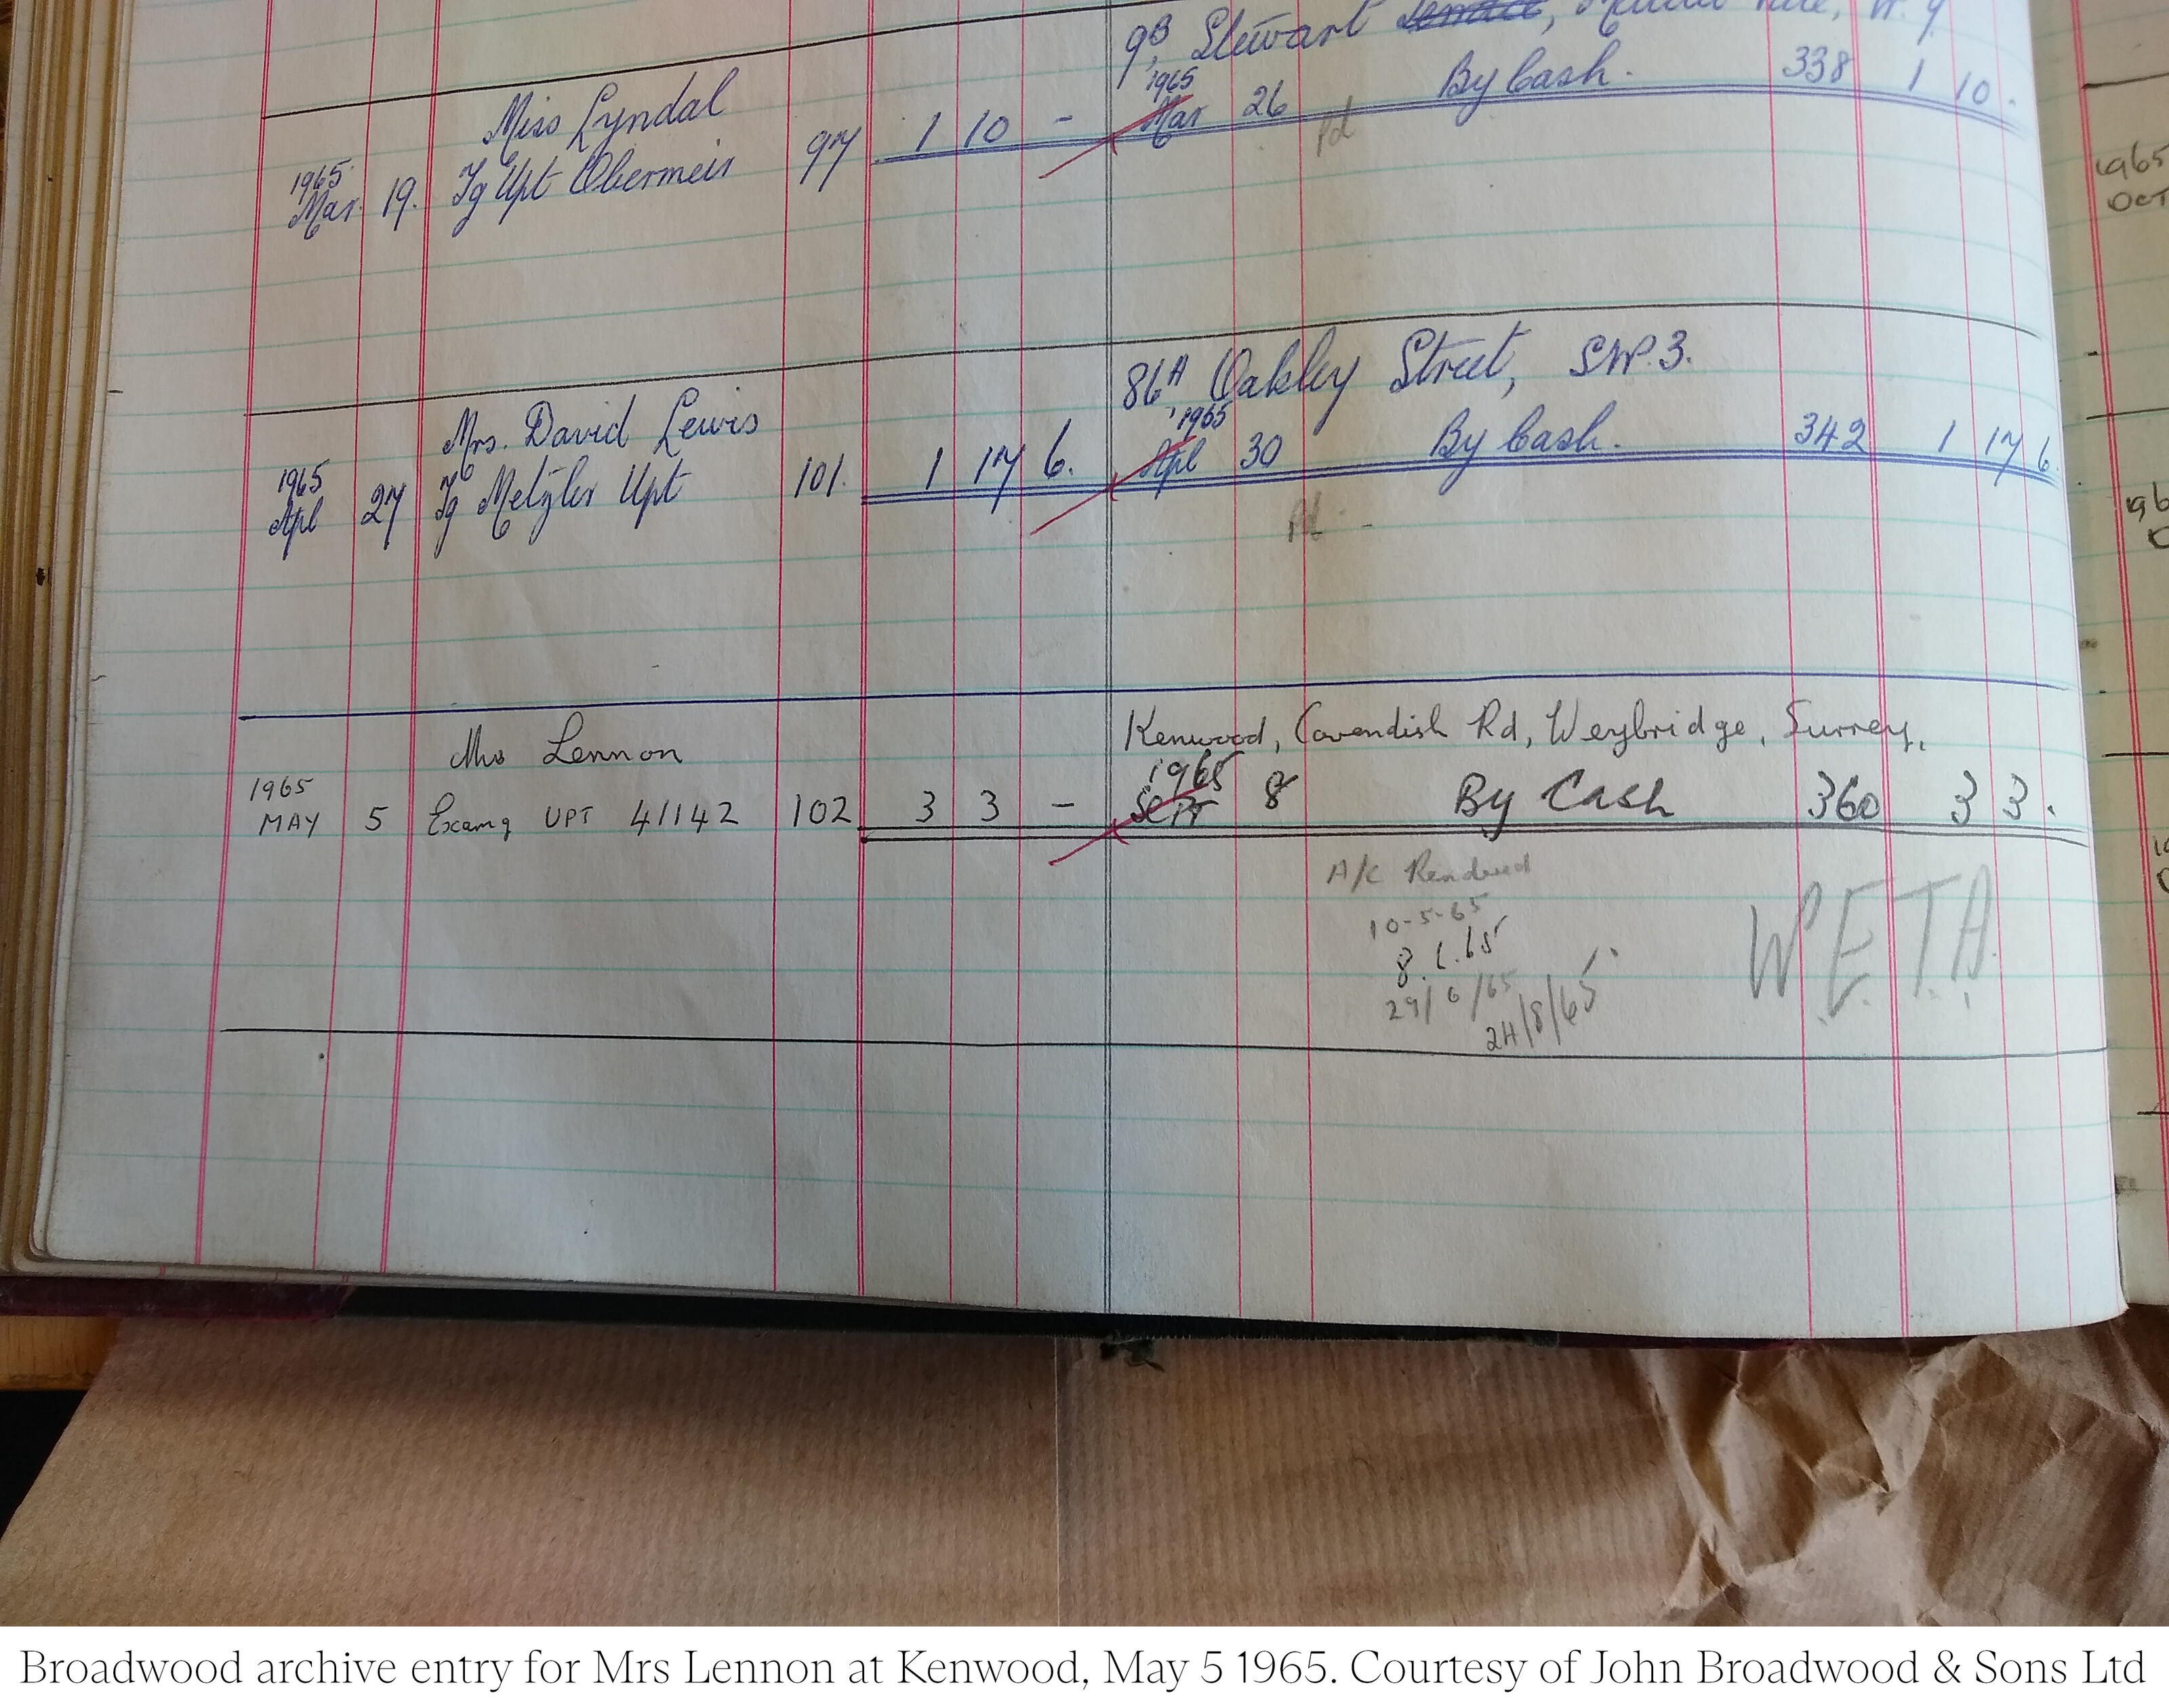 9B, Stewart
Miss Lyndal
1965
Mar 26 By Cash. 338 1 10 .
1965
Mar 19. Tg Upt Obermeir 97 1 10 -
Pd
1965
OCT
86A Oakley Street, S.W.3.
Mrs. David Lewis
1965
Apl 30 By Cash. 342 1 17 6
1965
Apl 27 Tg Metzler Upt 101. 1 17 6.
Pd -
Kenwood, Cavendish Rd, Weybridge, Surrey.
Mrs Lennon
1965
SEPT 8 By Cash 360 3 3 .
1965
MAY 5 Examg UPT 41142 102 3 3 -
A/C Rendered
10-5-65
8.6.65
29/6/65
24/8/65
W.E.T.A.
Broadwood archive entry for Mrs Lennon at Kenwood, May 5 1965. Courtesy of John Broadwood & Sons Ltd